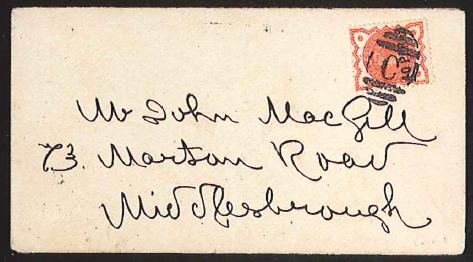 Mr John MacGill
73. Marton Road
Middlesbrough